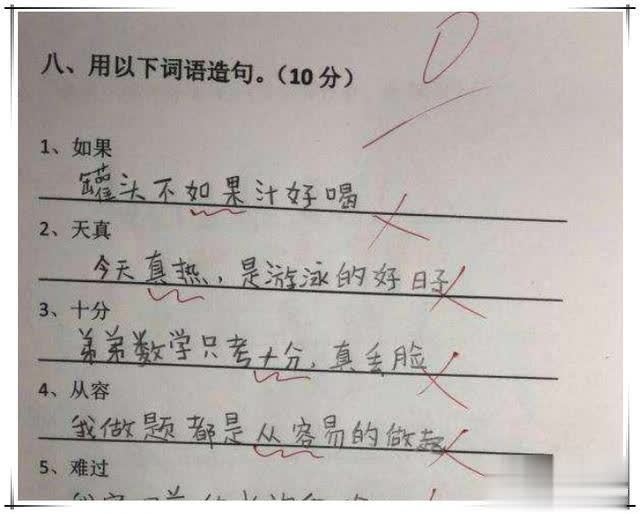 八、用以下词语造句。（10分）
0
1、如果
罐头不如果汁好喝
2、天真
今天真热，是游泳的好日子
3、十分
弟弟数学只考十分，真丢脸
4、从容
我做题都是从容易的做起
5、难过